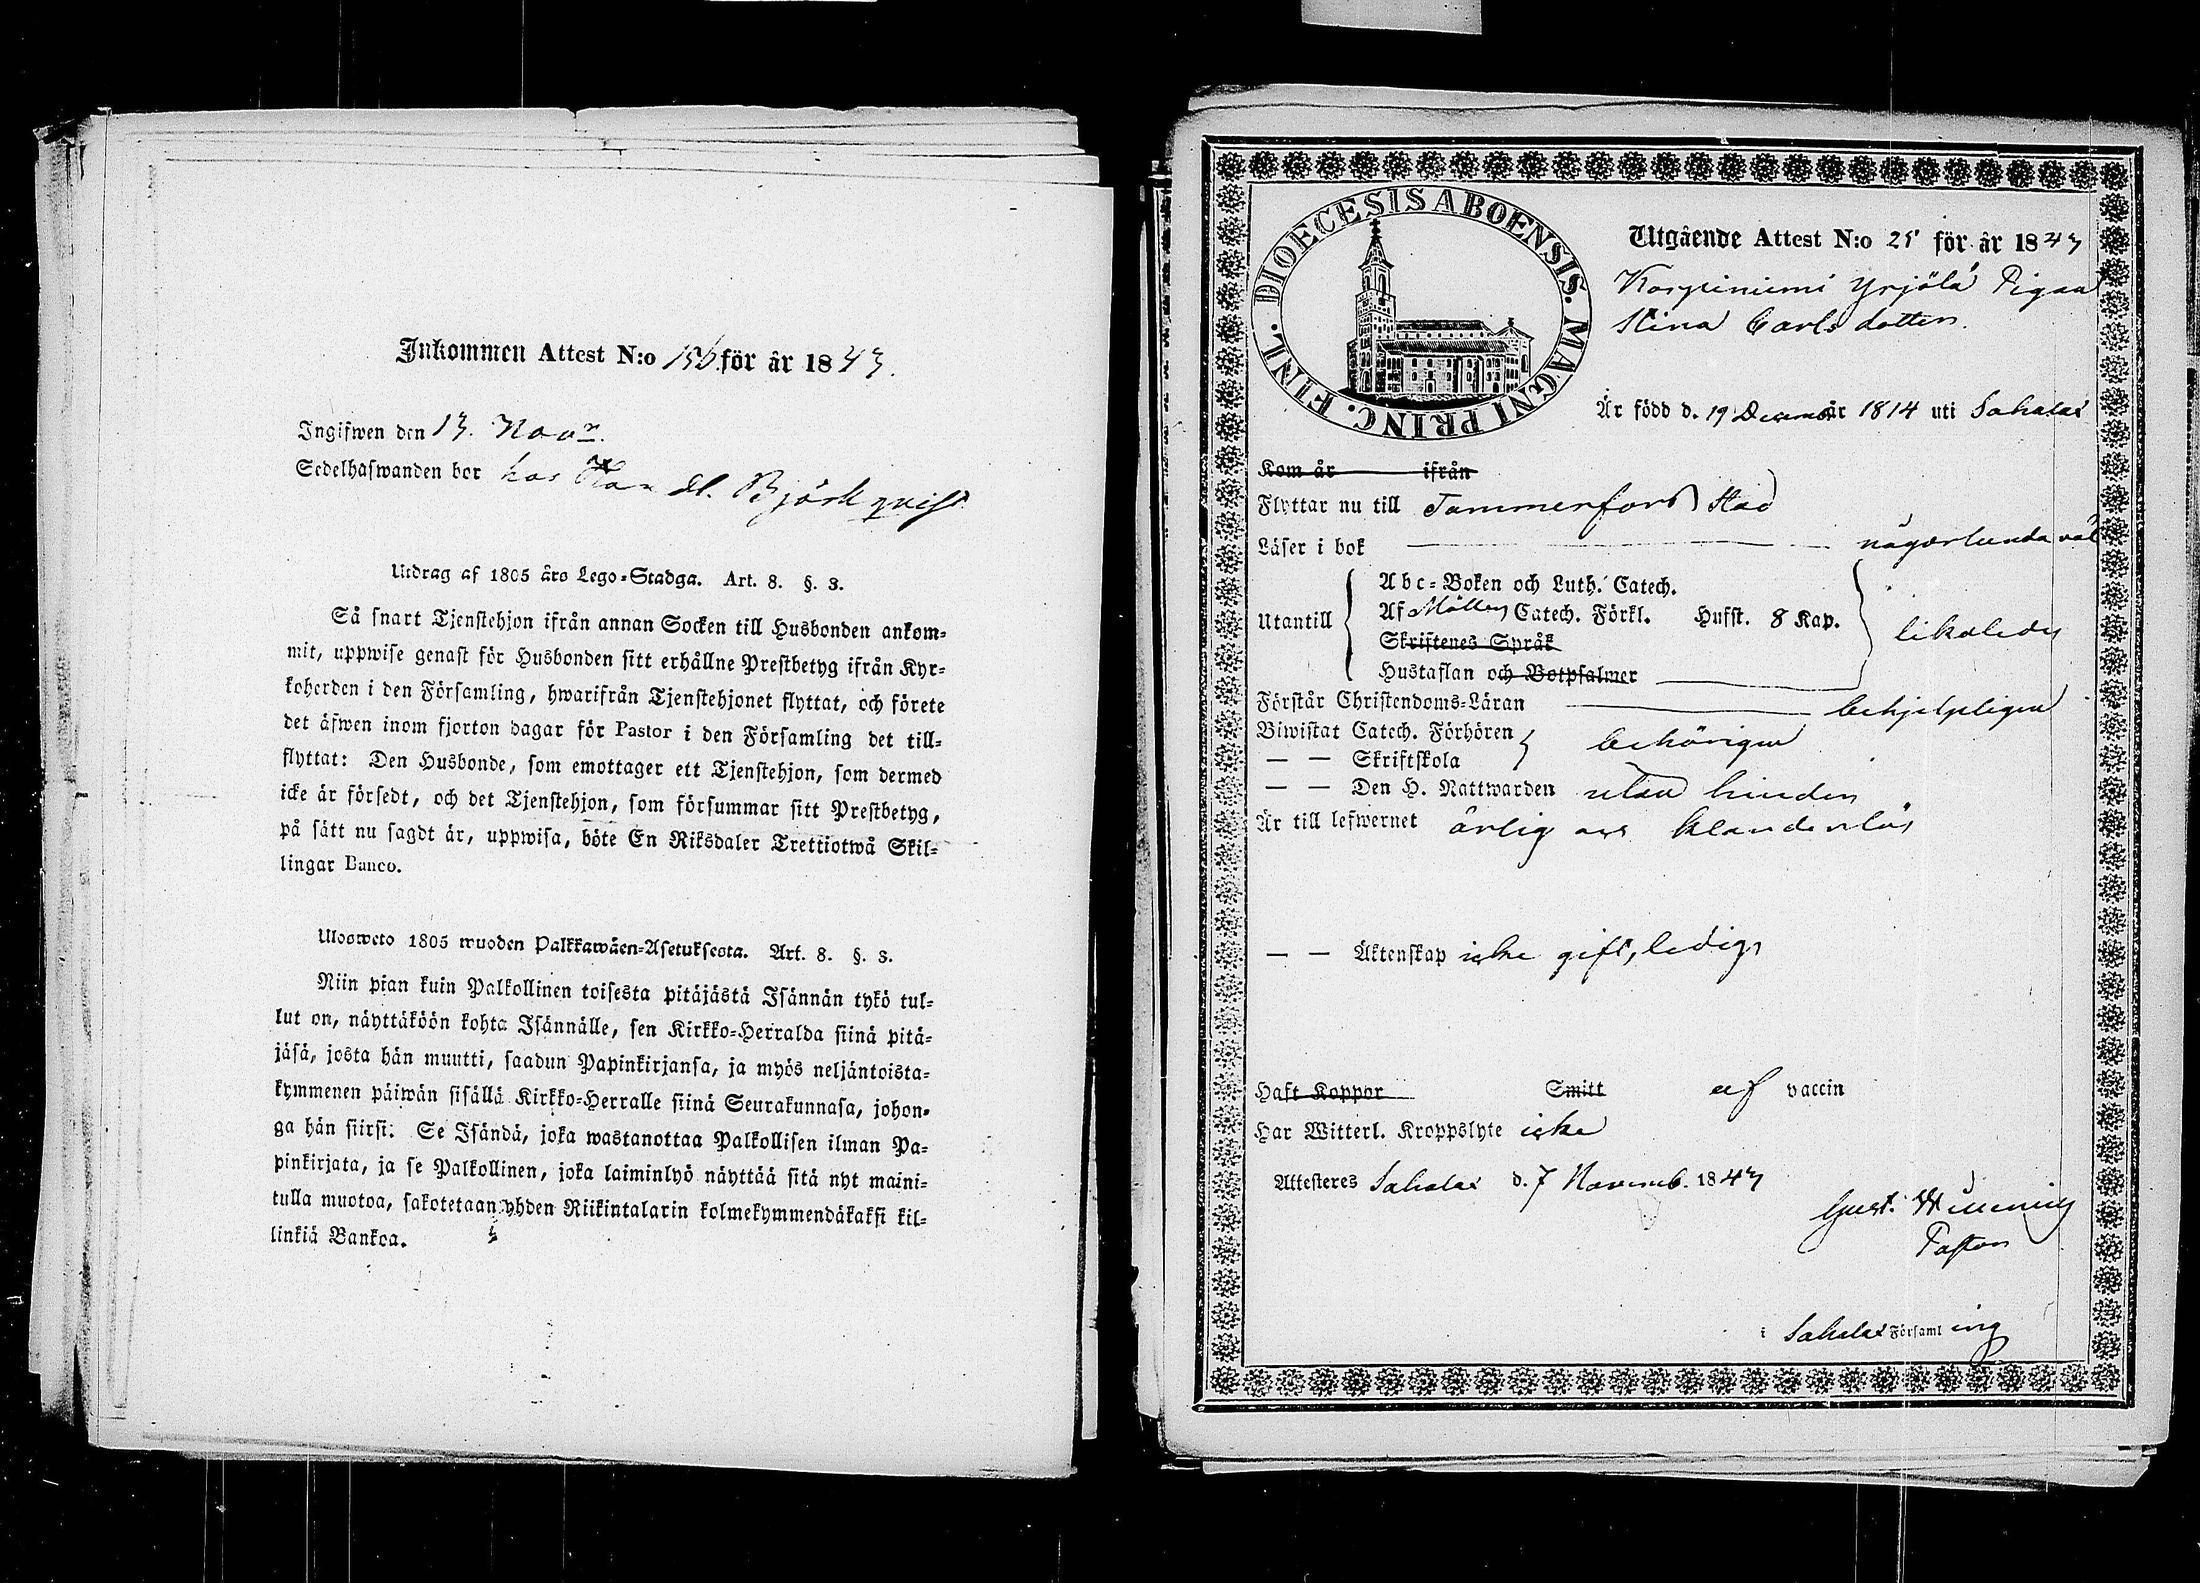 Inkommen Attest N:o 156 för år 1843.
Ingifwen den 13. Novr.
Sedelhafwanden bor hos Handl. Björkqvist
Utdrag af 1805 års Lego-Stadga. Art. 8. §. 3.
Så snart Tjenstehjon ifrån annan Socken till Husbonden ankom-
mit, uppwise genast för Husbonden sitt erhållne Prestbetyg ifrån Kyr-
koherden i den Församling, hwarifrån Tjenstehjonet flyttat, och förete
det äfwen inom fjorton dagar för Pastor i den Församling det till-
flyttat: Den Husbonde, som emottager ett Tjenstehjon, som dermed
icke är försedt, och det Tjenstehjon, som försummar sitt Prestbetyg,
på sätt nu sagdt är, uppwisa, böte En Riksdaler Trettiotwå Skil-
lingar Banco.
Ulosweto 1805 wuoden Palkkawäen-Asetuksesta. Art. 8. §. 3.
Niin pian kuin Palkollinen toisesta pitäjästä Isännän tykö tul-
lut on, näyttäköön kohta Isännälle, sen Kirkko-Herralda siinä pitä-
jäsä, josta hän muutti, saadun Papinkirjansa, ja myös neljäntoista-
kymmenen päiwän sisällä Kirkko-Herralle siinä Seurakunnasa, johon-
ga hän siirsi. Se Isändä, joka wastanottaa Palkollisen ilman Pa-
pinkirjata, ja se Palkollinen, joka laiminlyö näyttää sitä nyt maini-
tulla muotoa, sakotetaan yhden Riikintalarin kolmekymmendäkaksi kil-
linkiä Bankoa.
DIOECESIS ABOENSIS. MAGNI PRINC. FINL.
Utgående Attest N:o 25 för år 1843
Korpiniemi Yrjölä Pigan
Stina Carlsdotter.
Är född d. 19 Decemb. år 1814 uti Sahalax
Kom år ifrån
Flyttar nu till Tammerfors Stad
Läser i bok någorlunda väl
Utantill
Abc-Boken och Luth. Catech.
Af Möllers Catech. Förkl. Hufst. 8 Kap.
Skriftenes Språk
Hustaflan och Botpsalmer
likaledes
Förstår Christendoms-Läran behjelpligen
Biwistat Catech. Förhören
— — Skriftskola
behörigen
— — Den H. Nattwarden utan hinder
Är till lefwernet ärlig och klanderlös
— — Äktenskap icke gift, ledig
Haft Koppor Smitt af vaccin
Har Witterl. Kroppslyte icke
Attesteres Sahalax d. 7 Novemb. 1843
Gust.
Pastor
i Sahalax Församling